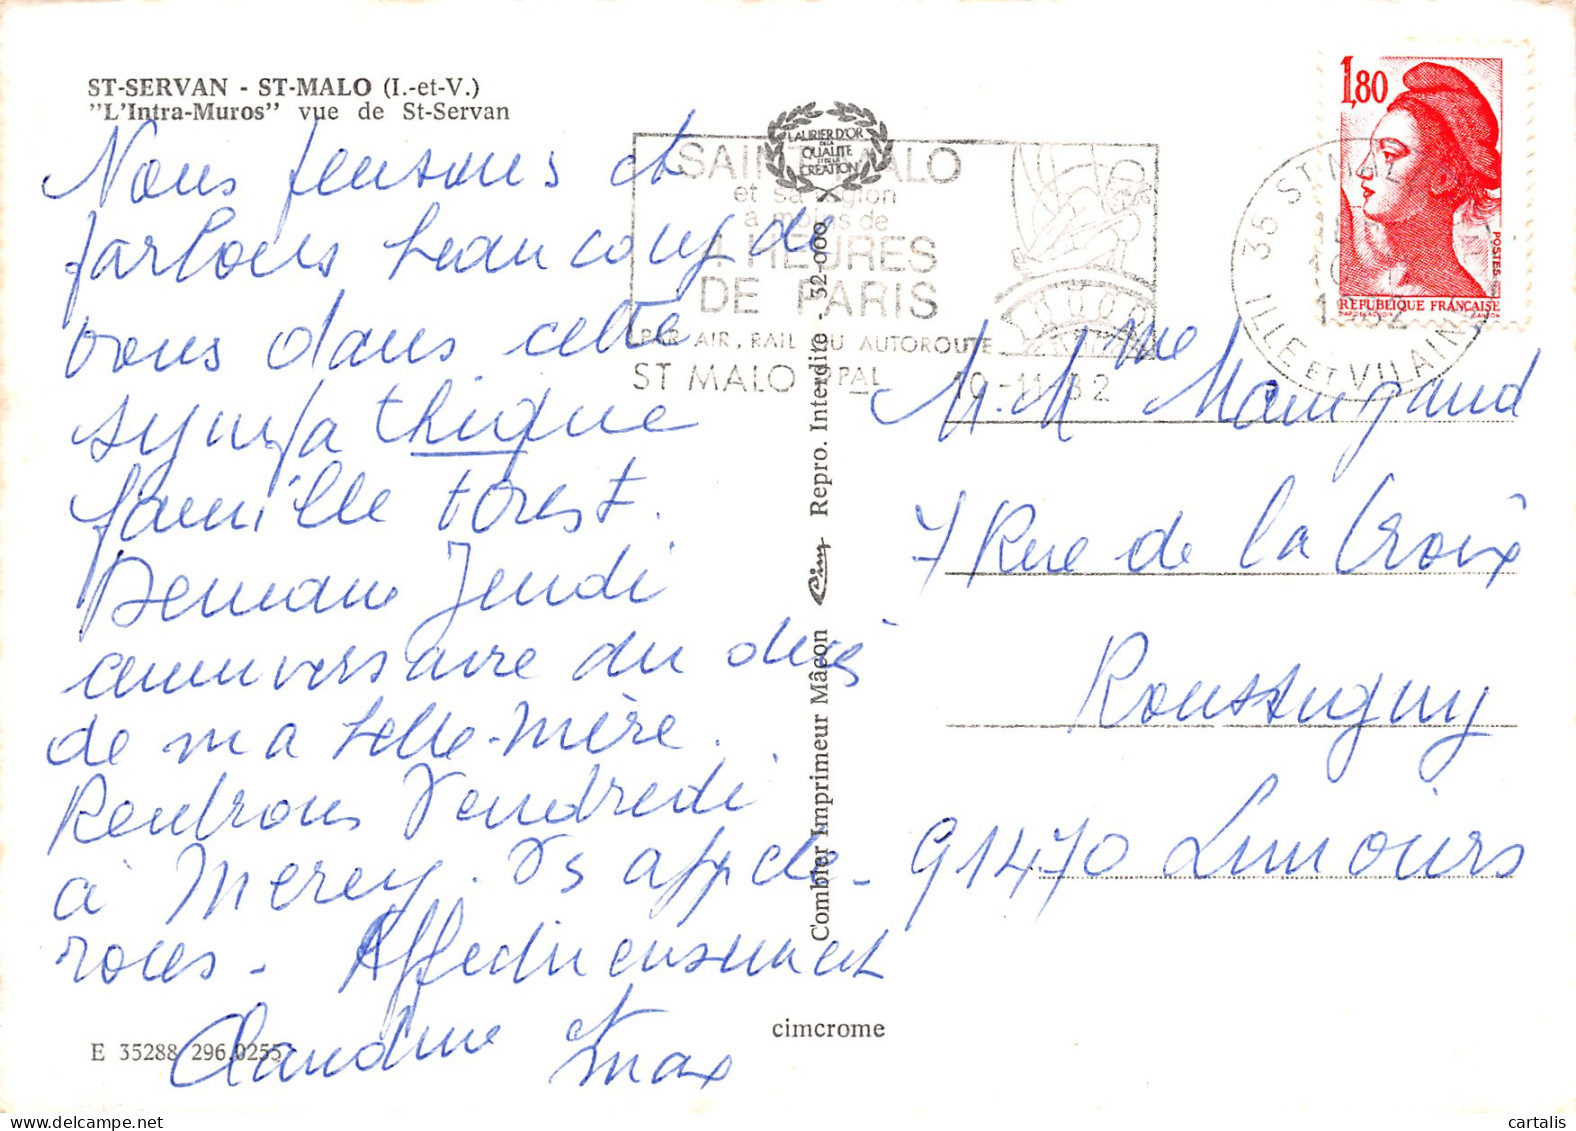 ST-SERVAN - ST-MALO (I.-et-V.)
"L'Intra-Muros" vue de St-Servan
Nous pensons et
parlons beaucoup de
vous dans cette
sympathique
famille Forest.
Demain Jeudi
anniversaire du décès
de ma belle-mère.
Rentrons Vendredi
à Merey. Vs appele-
rons - Affectueusement
Claudine et
Max
E 35288 296.0255
cimcrome
Combier Imprimeur Mâcon Cim Repro. Interdite - 32-000
LAURIER D'OR
DE LA
QUALITE
ET DE LA
CREATION
SAINT MALO
et sa région
à moins de
4 HEURES
DE PARIS
PAR AIR, RAIL OU AUTOROUTE
ST MALO PPAL 10-11-82
35 ST MALO
1982
ILLE ET VILAINE
1,80
POSTES
REPUBLIQUE FRANÇAISE
M. Mme Maingaud
7 Rue de la Croix
Roussigny
91470 Limours
cartalis